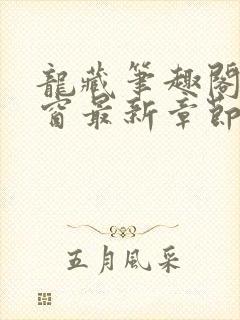 龍藏筆趣閣
窗最新章節
五月風采